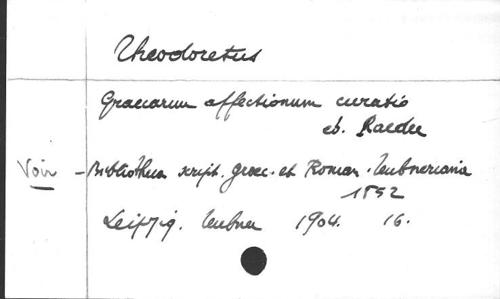 Theodoretus
Graecarum affectionum curatio
ed. Raeder
Voir - Bibliotheca script. graec. et Roman. Teubneriana
1852
Leipzig. Teubner 1904. 16.